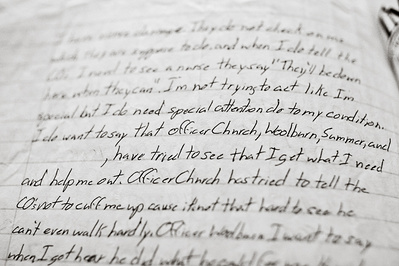 have nerve damage. They do not check on me
which they are suppose to do, and when I do tell the
COs, I need to see a nurse they say "They'll be down
here when they can". I'm not trying to act like I'm
special but I do need special attention do to my condition.
I do want to say that Officer Church, Woolburn, Summer, and
, have tried to see that I get what I need
and help me out. Officer Church has tried to tell the
COs not to cuff me up cause it not that hard to see he
can't even walk hardly. Officer Woolburn I want to say
when I got hear he did what he could for me